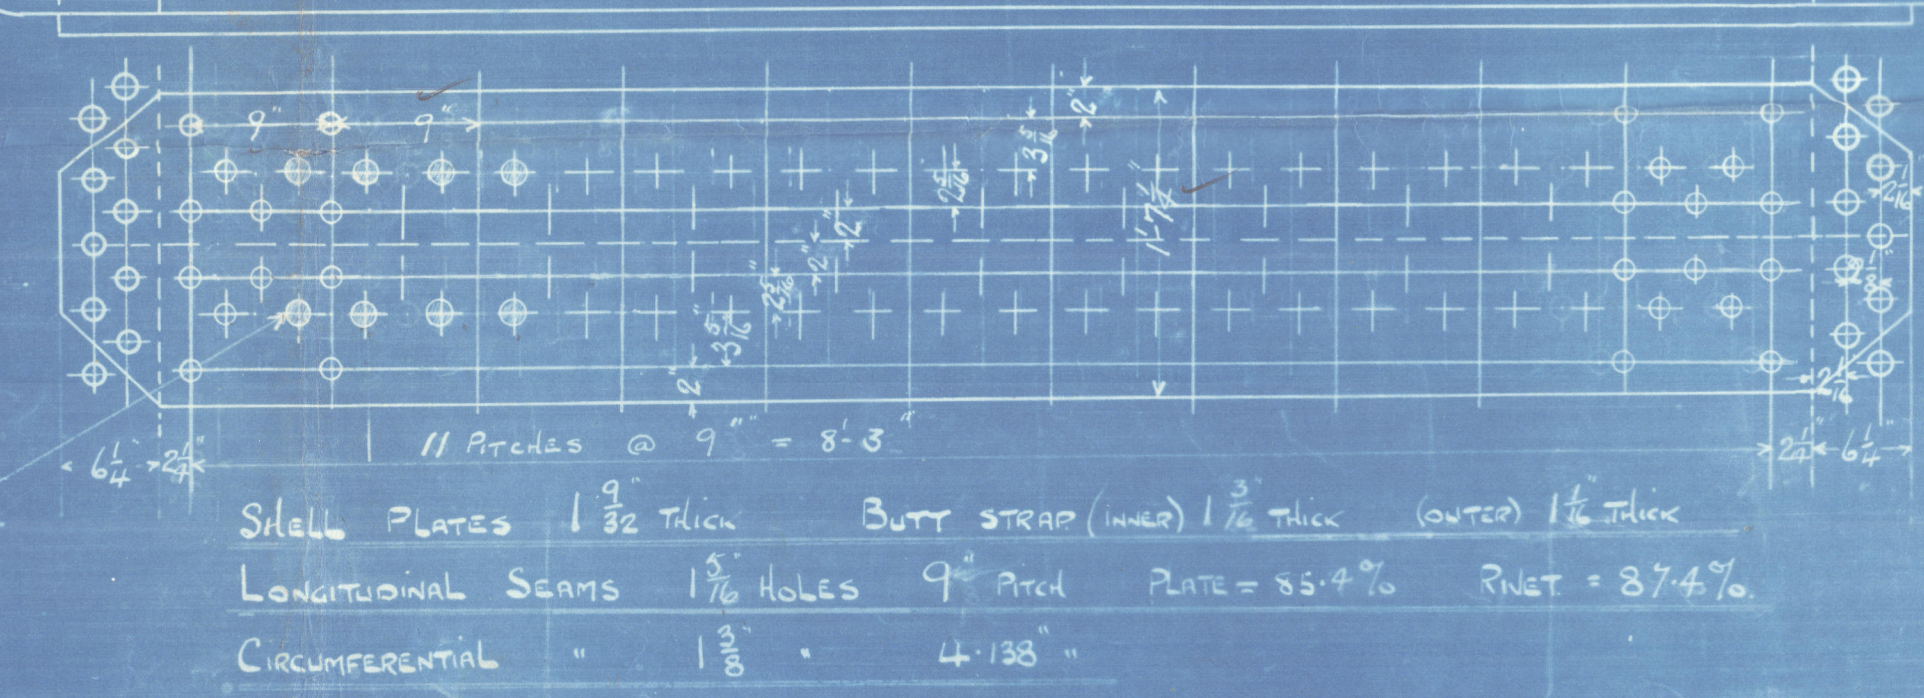 9" 9"
2"
3 5/16"
2 5/16"
1'-7 1/4"
2"
2"
2 5/16"
3 5/16"
2"
2 1/16"
2 1/8"
2 1/16"
11 PITCHES @ 9" = 8'-3"
6 1/4" 2 1/4" 2 1/4" 6 1/4"
SHELL PLATES 1 9/32" THICK BUTT STRAP (INNER) 1 3/16" THICK (OUTER) 1 1/16" THICK
LONGITUDINAL SEAMS 1 5/16" HOLES 9" PITCH PLATE = 85.4% RIVET = 87.4%.
CIRCUMFERENTIAL " 1 3/8" " 4.138" "